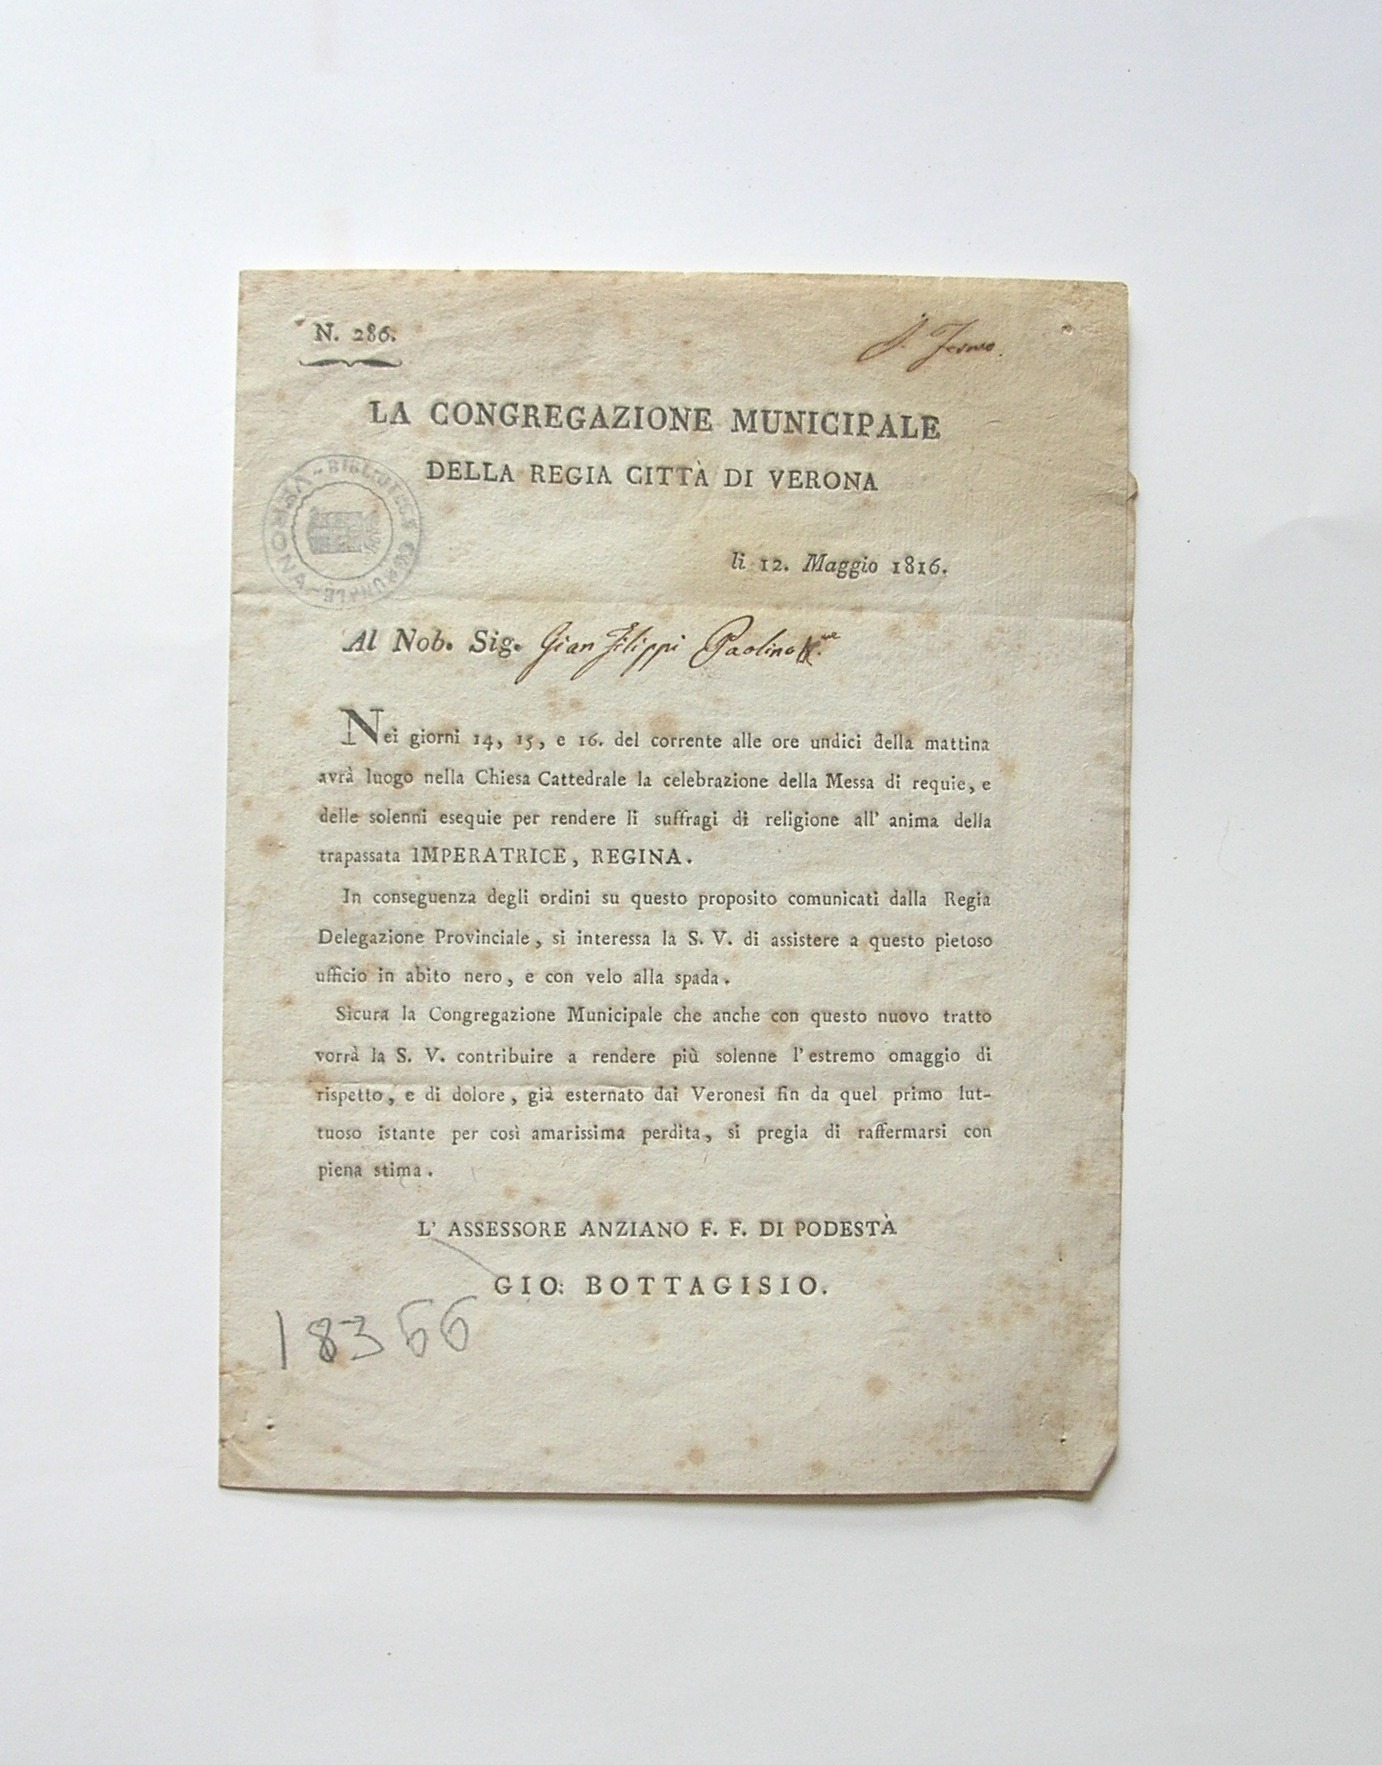 N. 286.
S. Fermo.
LA CONGREGAZIONE MUNICIPALE
DELLA REGIA CITTÀ DI VERONA
BIBLIOTECA COMUNALE - VERONA -
li 12. Maggio 1816.
Al Nob. Sig. Gian Filippi Paolino
Nei giorni 14, 15, e 16. del corrente alle ore undici della mattina
avrà luogo nella Chiesa Cattedrale la celebrazione della Messa di requie, e
delle solenni esequie per rendere li suffragi di religione all' anima della
trapassata IMPERATRICE, REGINA.
In conseguenza degli ordini su questo proposito comunicati dalla Regia
Delegazione Provinciale, si interessa la S. V. di assistere a questo pietoso
ufficio in abito nero, e con velo alla spada.
Sicura la Congregazione Municipale che anche con questo nuovo tratto
vorrà la S. V. contribuire a rendere più solenne l'estremo omaggio di
rispetto, e di dolore, già esternato dai Veronesi fin da quel primo lut-
tuoso istante per così amarissima perdita, si pregia di raffermarsi con
piena stima.
L' ASSESSORE ANZIANO F. F. DI PODESTÀ
GIO: BOTTAGISIO.
18366